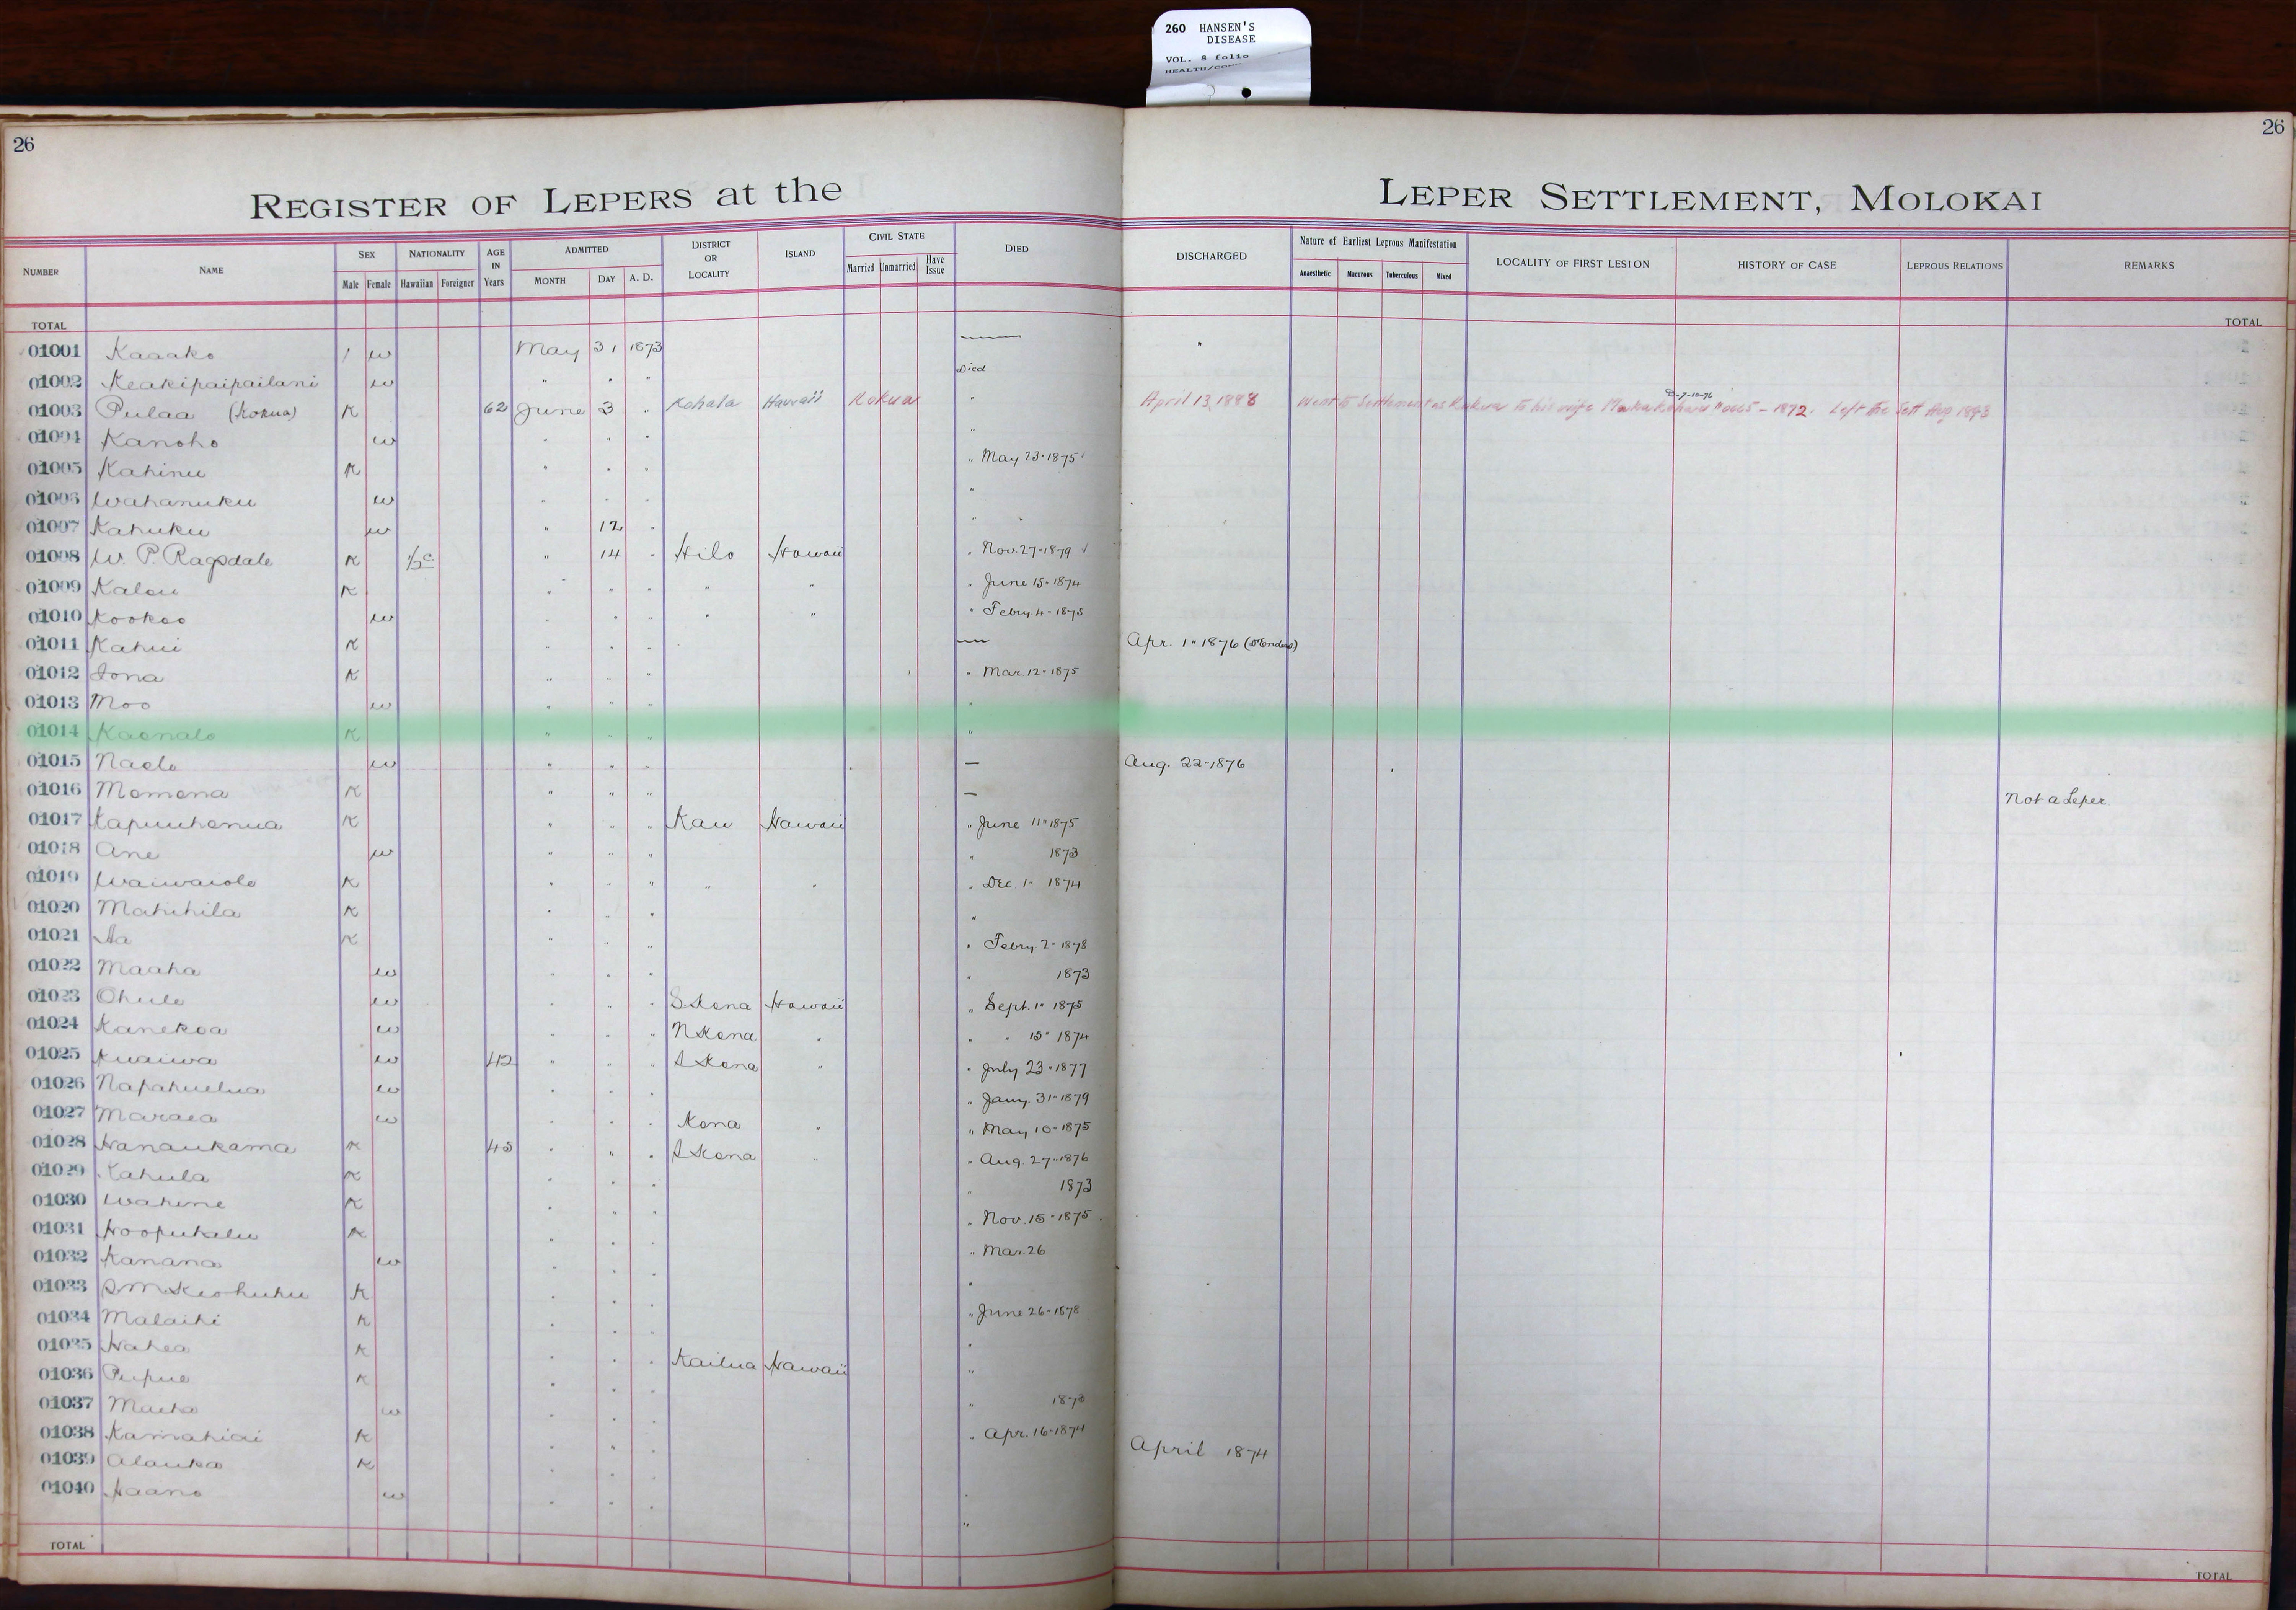 260 HANSEN'S
DISEASE
VOL. 8 folio
26
26
REGISTER OF LEPERS at the LEPER SETTLEMENT, MOLOKAI
NUMBER NAME SEX NATIONALITY AGE IN Years ADMITTED DISTRICT OR LOCALITY ISLAND CIVIL STATE DIED DISCHARGED Nature of Earliest Leprous Manifestation LOCALITY OF FIRST LESION HISTORY OF CASE LEPROUS RELATIONS REMARKS
Male Female Hawaiian Foreigner MONTH DAY A. D. Married Unmarried Have Issue Anaesthetic Macurous Tuberculous Mixed
TOTAL TOTAL
01001 Kaaako / w May 31 1873 —
01002 Keakipaipailani w " " " Died
01003 Pulaa (Kokua) K 62 June 3 " Kohala Hawaii Kokua " April 13, 1888 Went to Settlement as Kokua to his wife 1872. Left the Sett Aug 1893
01004 Kanoho w " " " "
01005 Kahinu K " " " " May 23 " 1875
01006 Wahanuku w " " " "
01007 Kahuku w " 12 " "
01008 W. P. Ragsdale K ½ c " 14 " Hilo Hawaii " Nov. 27 " 1879
01009 Kalou K " " " " " " June 15 " 1874
01010 Kookoo w " " " " " " Febry 4 - 1875
01011 Kahui K " " " — Apr. 1 " 1876
01012 Iona K " " " " Mar. 12 " 1875
01013 Moo w " " " "
01014 Kaonalo K " " " "
01015 Naelo w " " " — Aug. 22 - 1876
01016 Momona K " " " — Not a Leper
01017 Kapuuhonua K " " " Kau Hawaii " June 11 " 1875
01018 Ane w " " " " 1873
01019 Waiwaiole K " " " " " " Dec. 1 - 1874
01020 Mahihila K " " " "
01021 Aa K " " " " Febry. 2 " 1878
01022 Maaha w " " " " 1873
01023 Ohule w " " " S. Kona Hawaii " Sept. 1 " 1875
01024 Kanekoa w " " " N Kona " " " 15 " 1874
01025 Kuaiwa w 42 " " " S Kona " " July 23 " 1877
01026 Napahuelua w " " " " Jany. 31 " 1879
01027 Maraea w " " " Kona " " May 10 - 1875
01028 Hanaukama K 45 " " " S Kona " " Aug. 27 " 1876
01029 Kahula K " " " " 1873
01030 Wahine K " " " " Nov. 15 " 1875
01031 Hoopukalu K " " " " Mar. 26
01032 Kanana w " " " "
01033 S M Keohuhu K " " " " June 26 - 1878
01034 Malaihi K " " " "
01035 Hahea K " " " Kailua Hawaii "
01036 Pupue K " " " " 1873
01037 Maeha w " " " " Apr. 16 - 1874
01038 Kamahiai K " " " April 1874
01039 Alauka K " " " "
01040 Haano w " " " "
TOTAL TOTAL